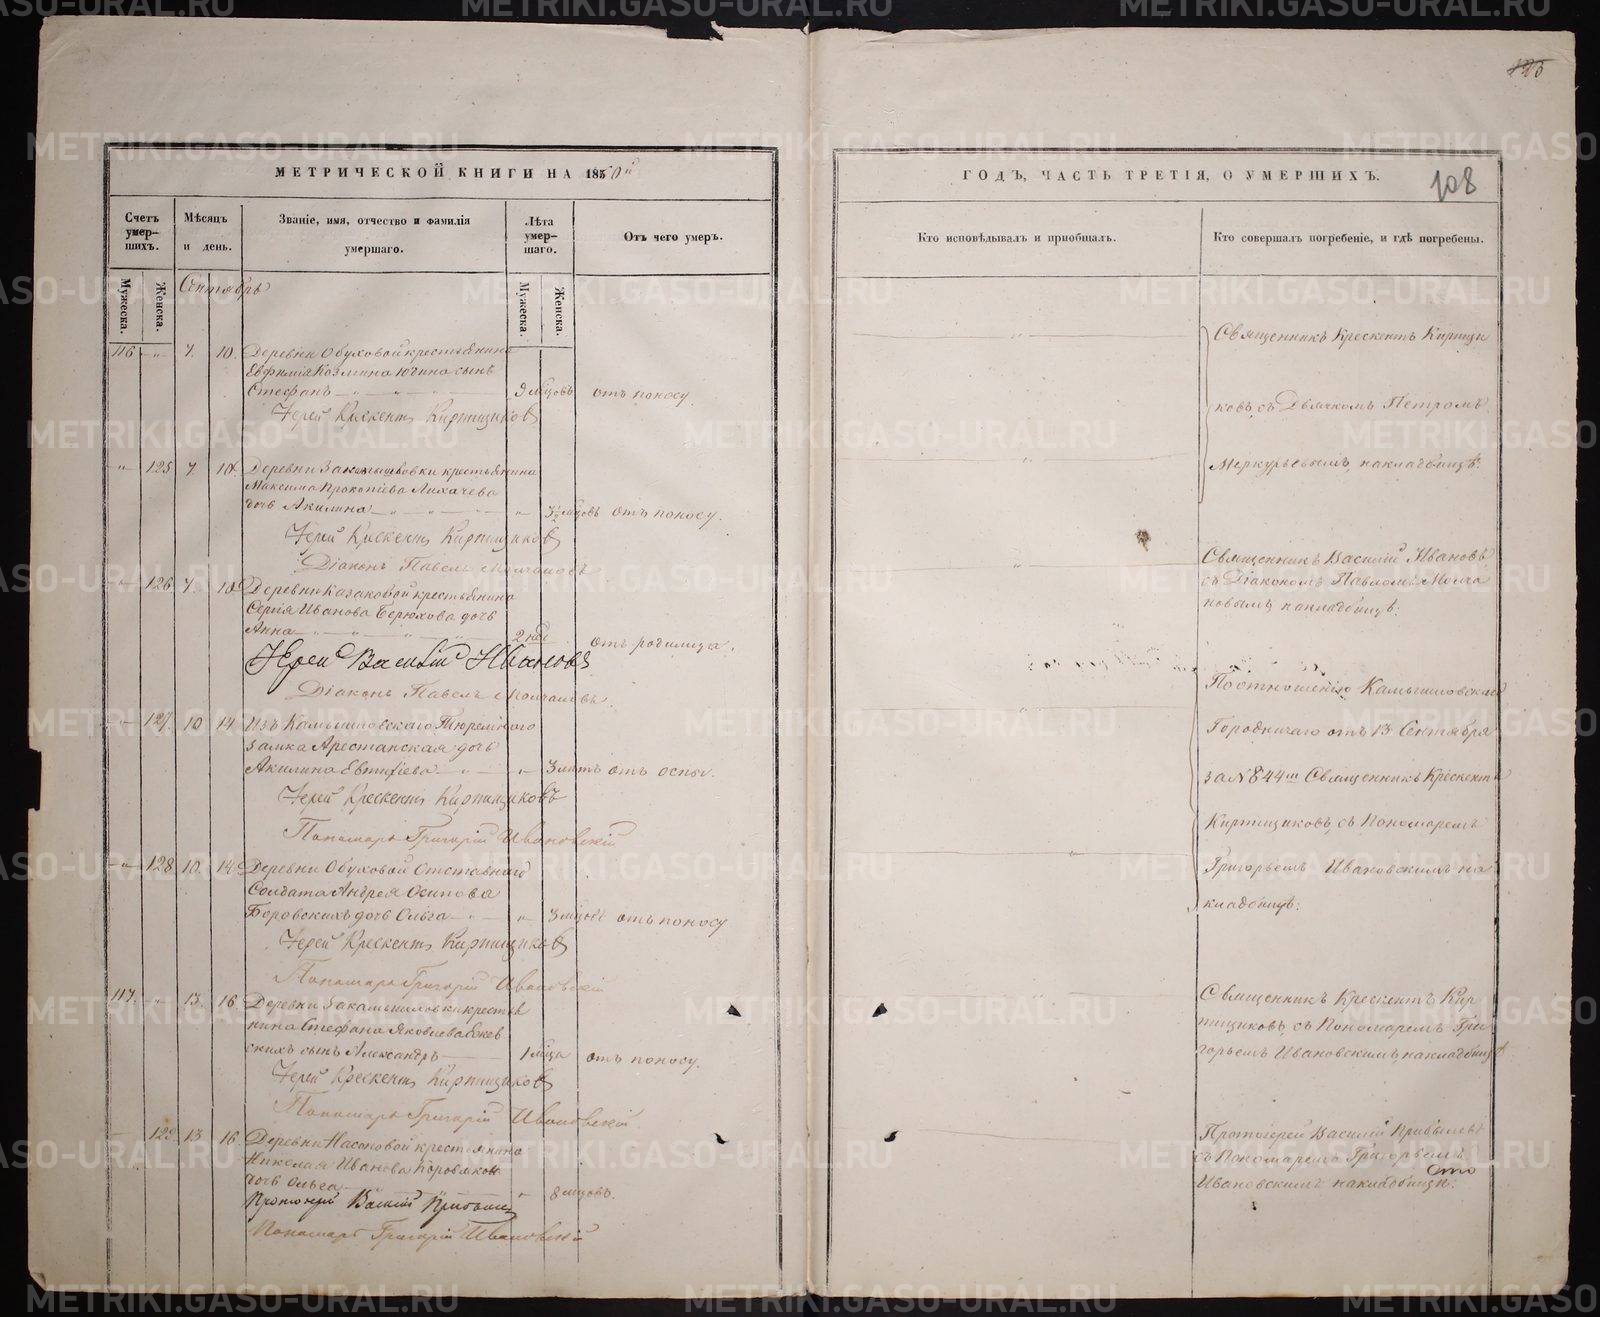 МЕТРИЧЕСКОЙ КНИГИ НА 1850й
Счетъ умер-шихъ.
Мѣсяцъ и день.
Званіе, имя, отчество и фамилія умершаго.
Лѣта умер-шаго.
Отъ чего умеръ.
Мужеска.
Женска.
Мужеска.
Женска.
Сентябрь
116 " 7. 10. Деревни Обуховой крестьянина
Евфимія Козмина Югина сынъ
Стефанъ 9 мѣсцовъ отъ поносу.
Іерей Крескентъ Кирпищиковъ
" 125 7. 10. Деревни Закамышловки крестьянина
Максима Прокопіева Лихачева
дочь Акилина " 3½ мѣсцовъ отъ поносу.
Іерей Крескентъ Кирпищиковъ
Діаконъ Павелъ Молчановъ
" 126 7. 10. Деревни Казаковой крестьянина
Сергія Иванова Берюхова дочь
Анна 2 нед отъ родимца.
Іерей Василій Ивановъ
Діаконъ Павелъ Молчановъ.
" 127. 10 14 Изъ Камышловскаго Тюремнаго
замка Арестанская дочь
Акилина Евтихіева " 3 лѣтъ отъ оспы.
Іерей Крескентъ Кирпищиковъ
Пономарь Григорій Ивановскій
" 128 10. 14. Деревни Обуховой Отставнаго
Солдата Андрея Осипова
Боровскихъ дочь Ольга " 3 мѣсцовъ отъ поносу
Іерей Крескентъ Кирпищиковъ
Пономарь Григорій Ивановскій
117. " 13. 16 Деревни Закамышловки крестья
нина Стефана Яковлева
скихъ сынъ Александръ 1 мѣсца отъ поносу.
Іерей Крескентъ Кирпищиковъ
Пономарь Григорій Ивановскій.
129 13 16. Деревни Насоновой крестьянина
Николая Иванова
дочь Ольга " 8 мѣсцовъ.
Протоіерей Василій
Пономарь Григорій Ивановскій
125
108
ГОДЪ, ЧАСТЬ ТРЕТІЯ, О УМЕРШИХЪ.
Кто исповѣдывалъ и пріобщалъ.
Кто совершалъ погребеніе, и гдѣ погребены.
Священникъ Крескентъ Кирпищи
ковъ, съ Дьячкомъ Петромъ
Меркурьевымъ, на кладбищѣ.
Священникъ Василій Ивановъ
съ Діакономъ Павломъ Молча
новымъ на кладбищѣ.
По отношенію Камышловскаго
Городничаго отъ 13 Сентября
за N 844м Священникъ Крескентъ
Кирпищиковъ, съ Пономаремъ
Григорьемъ Ивановскимъ на
кладбищѣ.
Священникъ Крескентъ Кир
пищиковъ, съ Пономаремъ Гри
горьемъ Ивановскимъ, на кладбищѣ
Протоіерей Василій
съ Пономаремъ Григорьемъ
Ивановскимъ на кладбищѣ.
METRIKI.GASO-URAL.RU